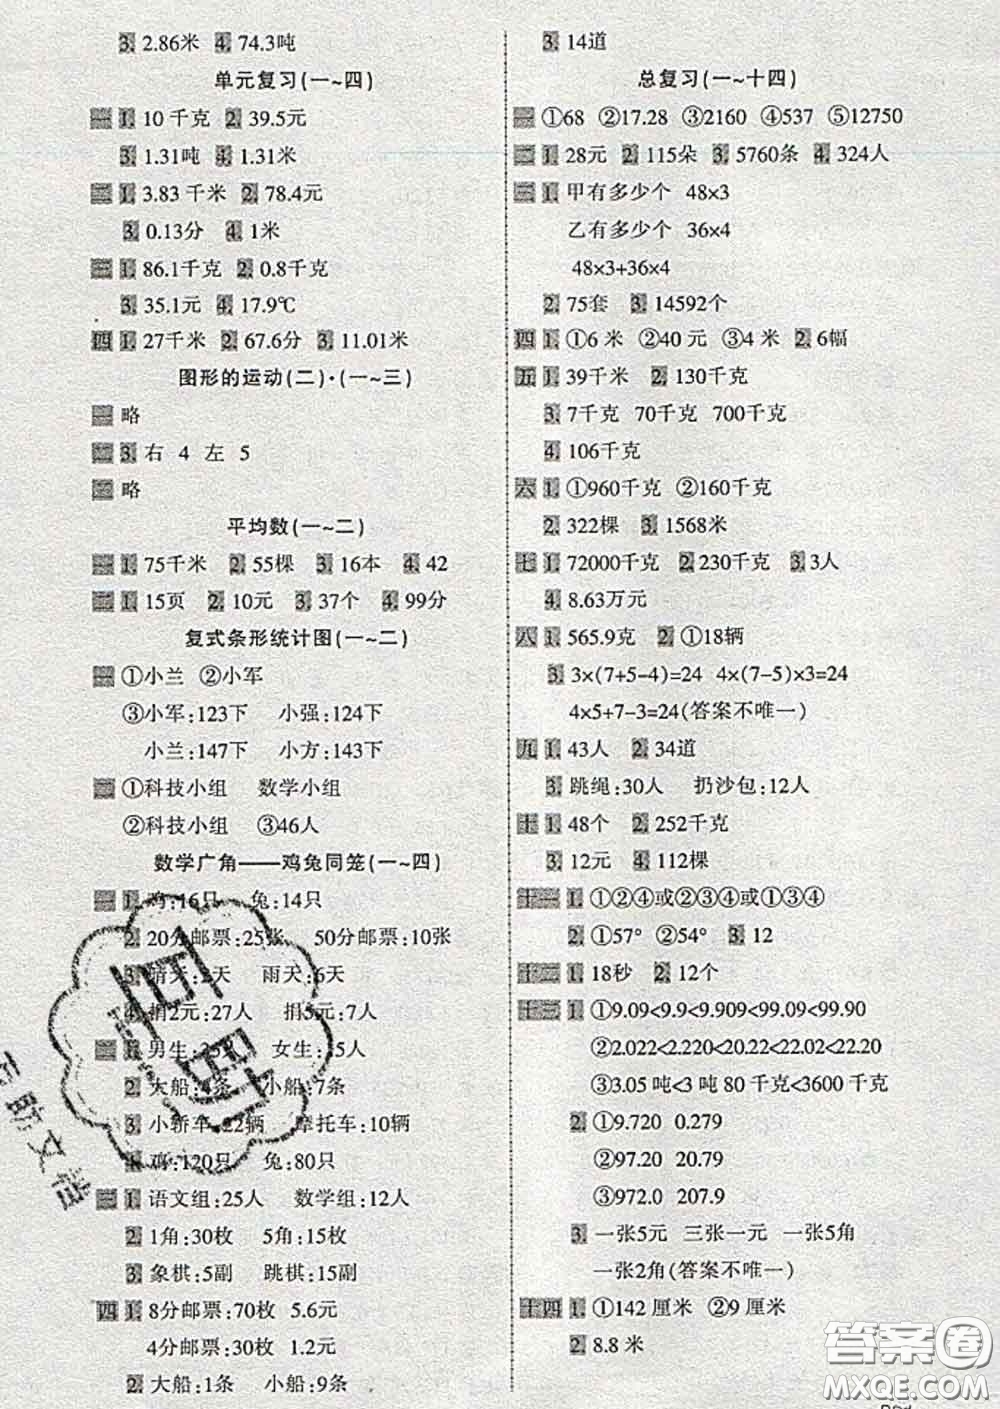 3. 2.86米 4. 74.3吨
单元复习(一~四)
一 1. 10千克 2. 39.5元
3. 1.31吨 4. 1.31米
二 1. 3.83千米 2. 78.4元
3. 0.13分 4. 1米
三 1. 86.1千克 2. 0.8千克
3. 35.1元 4. 17.9℃
四 1. 27千米 2. 67.6分 3. 11.01米
图形的运动(二)·(一~三)
一 略
二 3. 右 4 左 5
三 略
平均数(一~二)
一 1. 75千米 2. 55棵 3. 16本 4. 42
二 1. 15页 2. 10元 3. 37个 4. 99分
复式条形统计图(一~二)
一 ①小兰 ②小军
③小军:123下 小强:124下
小兰:147下 小方:143下
二 ①科技小组 数学小组
②科技小组 ③46人
数学广角——鸡兔同笼(一~四)
一 1. 鸡:16只 兔:14只
2. 20分邮票:25张 50分邮票:10张
3. 晴天:2天 雨天:6天
4. 捐2元:27人 捐5元:18人
二 1. 男生: 女生:
2. 大船:4条 小船:7条
3. 小轿车:22辆 摩托车:10辆
4. 鸡:120只 兔:80只
三 1. 语文组:25人 数学组:12人
2. 1角:30枚 5角:30枚
3. 象棋:5副 跳棋:15副
四 1. 8分邮票:70枚 5.6元
4分邮票:30枚 1.2元
2. 大船:1条 小船:9条
3. 14道
总复习(一~十四)
一 ①68 ②17.28 ③2160 ④537 ⑤12750
二 1. 28元 2. 115朵 3. 5760条 4. 324人
三 1. 甲有多少个 48×3
乙有多少个 36×4
48×3+36×4
2. 75套 3. 14592个
四 1. ①6米 ②40元 ③4米 2. 6幅
五 1. 39千米 2. 130千克
3. 7千克 70千克 700千克
4. 106千克
六 1. ①960千克 ②160千克
2. 322棵 3. 1568米
七 1. 72000千克 2. 230千克 3. 3人
4. 8.63万元
八 1. 565.9克 2. ①18辆
3. 3×(7+5-4)=24 4×(7-5)×3=24
4×5+7-3=24(答案不唯一)
九 1. 43人 2. 34道
3. 跳绳:30人 扔沙包:12人
十 1. 48个 2. 252千克
3. 12元 4. 112棵
十一 1. ①②④或②③④或①③④
2. ①57° ②54° 3. 12
十二 1. 18秒 2. 12个
十三 1. ①9.09<9.9<9.909<99.09<99.90
②2.022<2.220<20.22<22.02<22.20
③3.05吨<3吨80千克<3600千克
2. ①9.720 0.279
②97.20 20.79
③972.0 207.9
3. 一张5元 三张一元 一张5角
一张2角(答案不唯一)
十四 1. ①142厘米 ②9厘米
2. 8.8米
答案圈
MXQE.COM